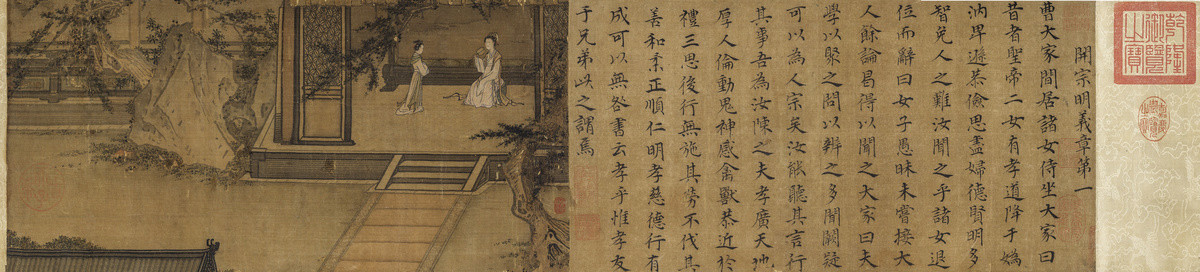 乾隆御覽之寶
開宗明義章第一
曹大家閒居諸女侍坐大家曰
昔者聖帝二女有孝道降于媯
汭卑遜恭儉思盡婦德賢明多
智免人之難汝聞之乎諸女退
位而辭曰女子愚昧未嘗接大
人餘論曷得以聞之大家曰夫
學以聚之問以辨之多聞闕疑
可以為人宗矣汝能聽其言行
其事吾為汝陳之夫孝廣天地
厚人倫動鬼神感禽獸恭近於
禮三思後行無施其勞不伐其
善和柔正順仁明孝慈德行有
成可以無咎書云孝乎惟孝友
于兄弟此之謂焉